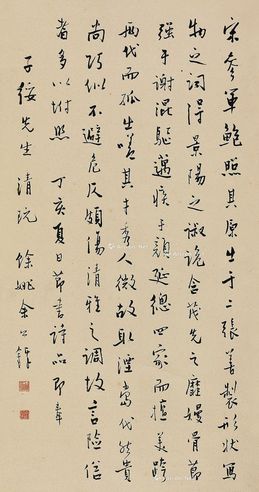 宋参军鲍照其原出于二張善製形狀寫
物之詞得景陽之諔詭含茂先之靡嫚骨節
強于謝混駈邁疾于顏延總四家而擅美跨
兩代而孤出嗟其才秀人微故取湮當代然貴
尚巧似不避危仄頗傷清雅之調故言險俗
者多以附照 丁亥夏日節書詩品即奉
子綏先生清玩 餘姚